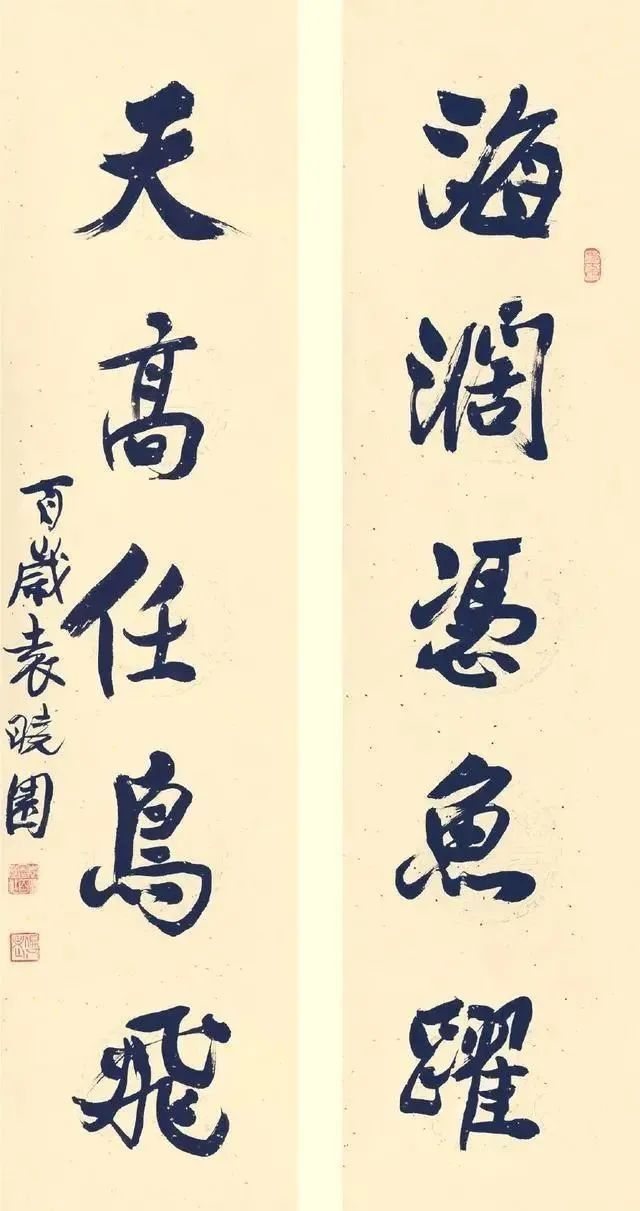 海濶憑魚躍
天高任鳥飛
百歲袁曉園